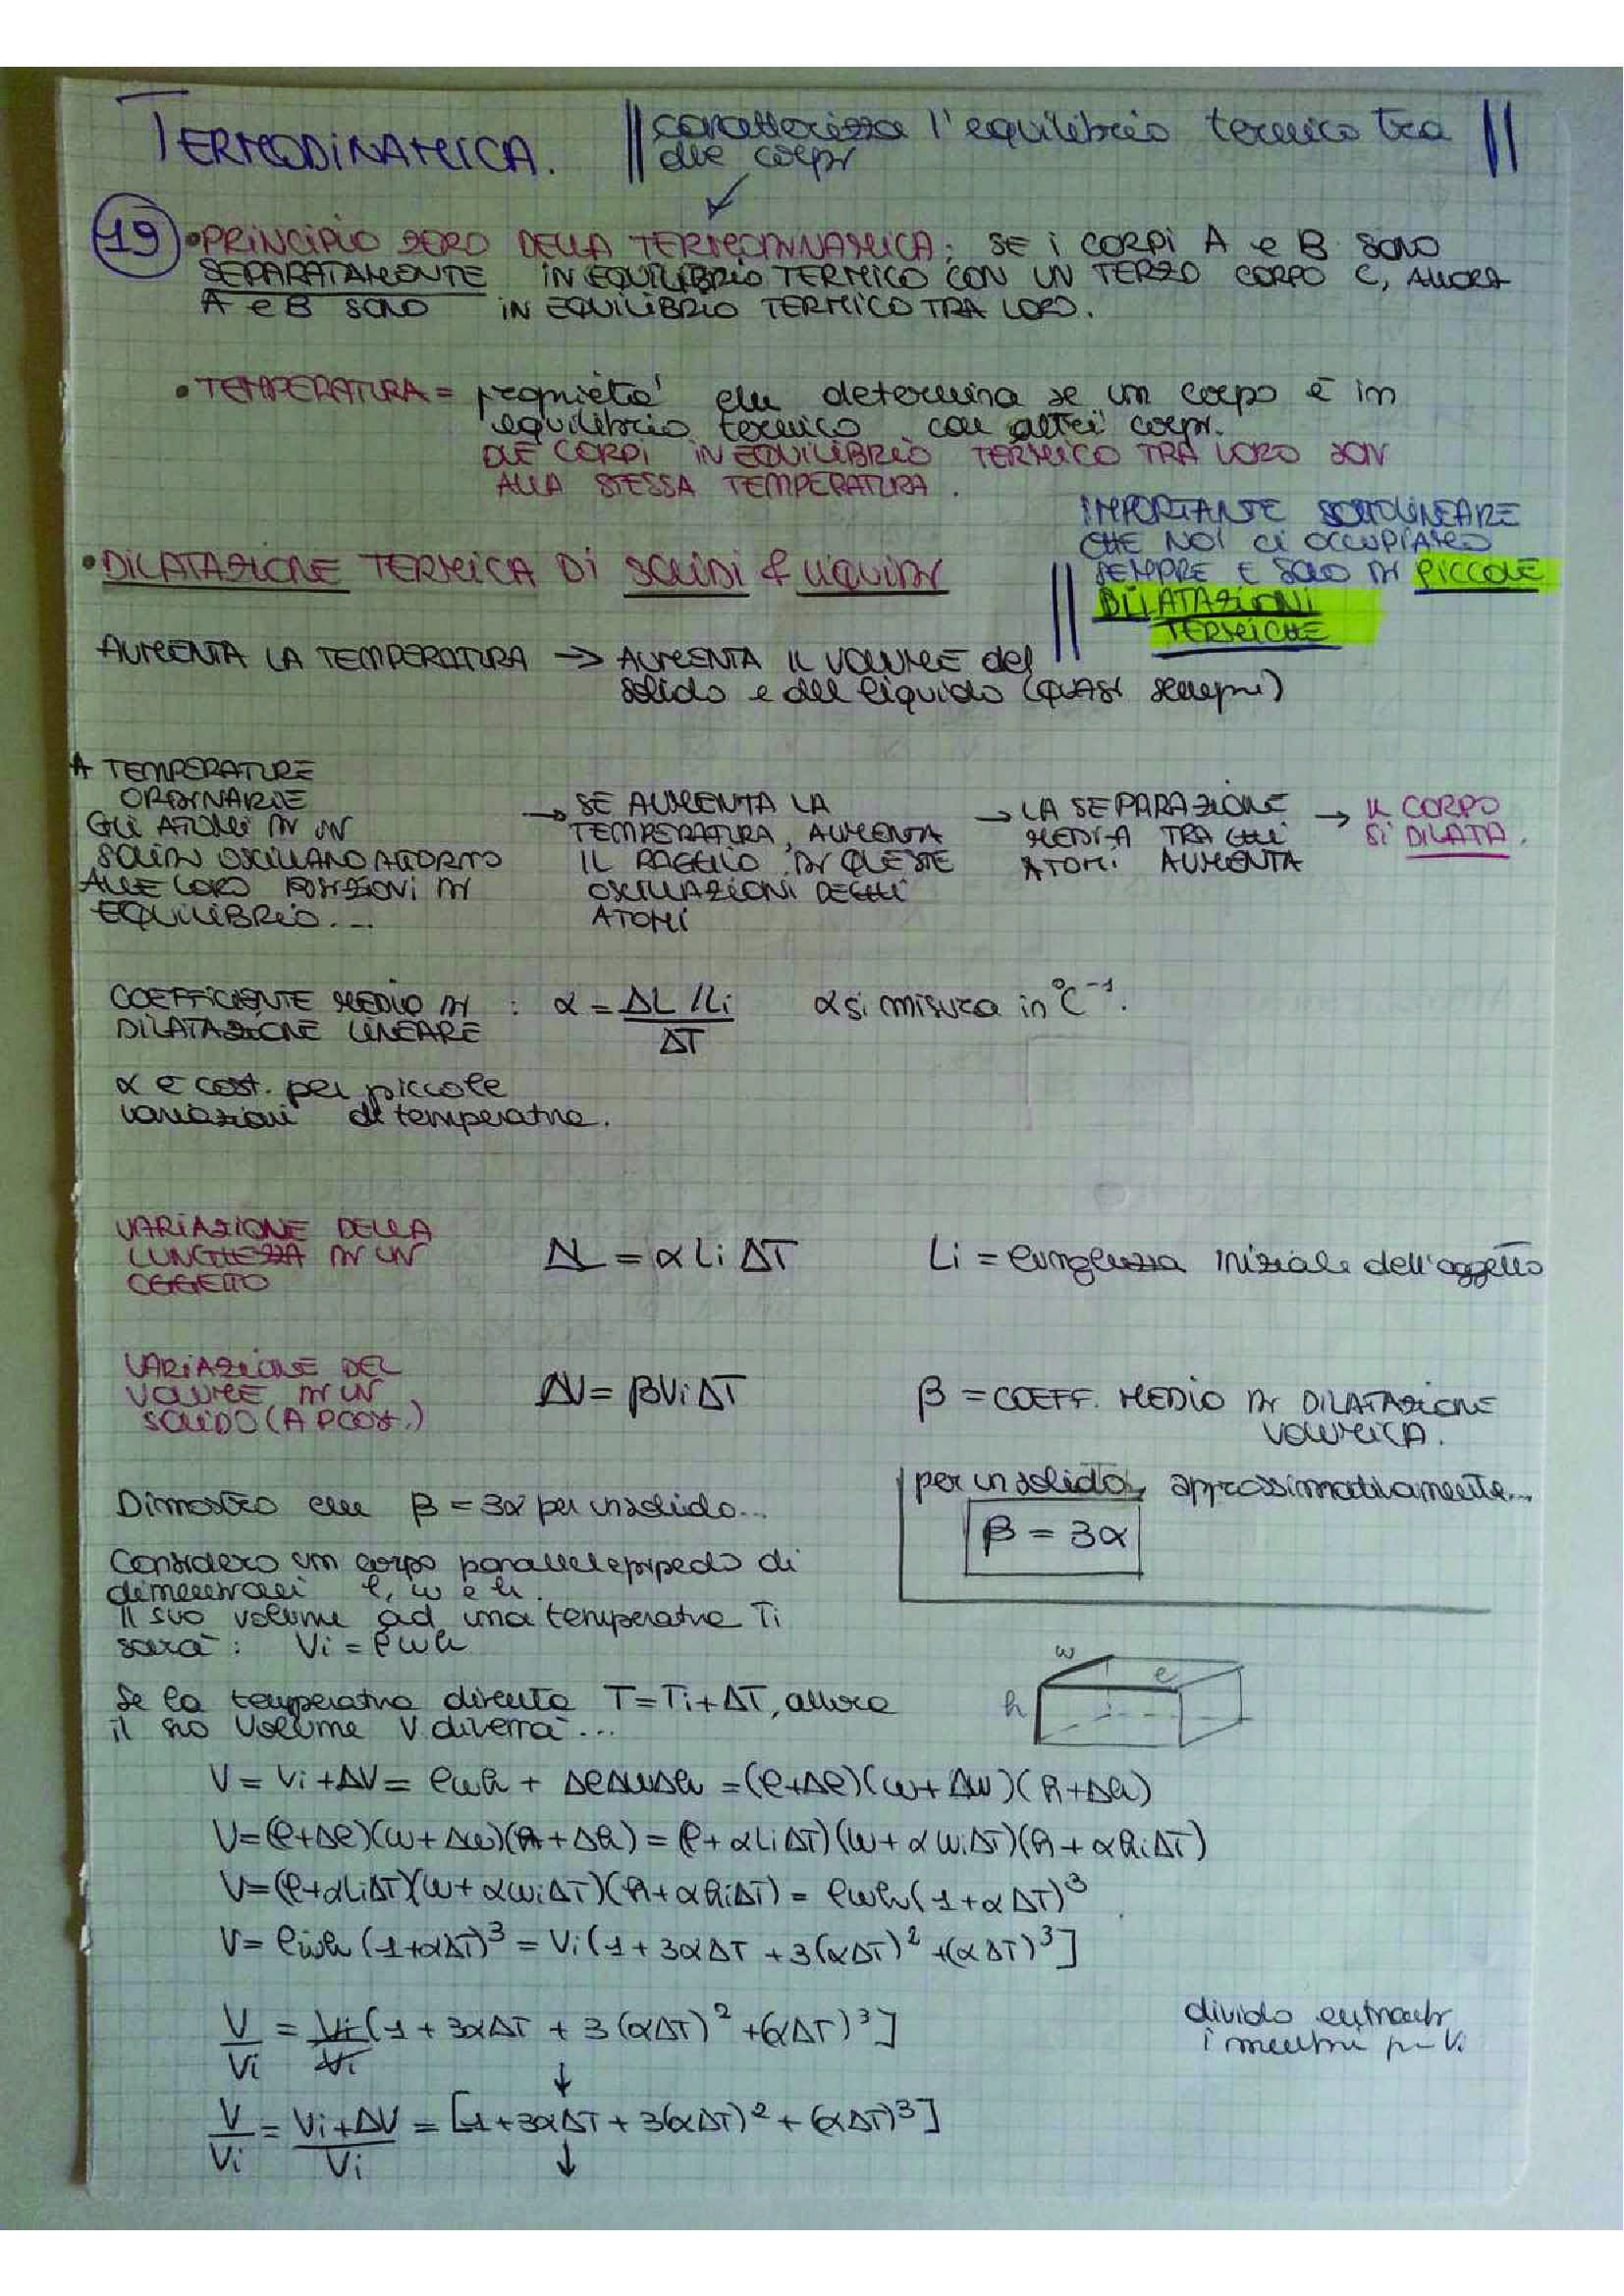 TERMODINAMICA.
caratterizza l'equilibrio termico tra
due corpi
19 • PRINCIPIO ZERO DELLA TERMODINAMICA: SE I CORPI A e B SONO
SEPARATAMENTE IN EQUILIBRIO TERMICO CON UN TERZO CORPO C, ALLORA
A e B SONO IN EQUILIBRIO TERMICO TRA LORO.
• TEMPERATURA = proprietà che determina se un corpo è in
equilibrio termico con altri corpi.
DUE CORPI IN EQUILIBRIO TERMICO TRA LORO SON
ALLA STESSA TEMPERATURA.
IMPORTANTE SOTTOLINEARE
CHE NOI CI OCCUPIAMO
SEMPRE E SOLO DI PICCOLE
DILATAZIONI
TERMICHE
• DILATAZIONE TERMICA DI SOLIDI & LIQUIDI
AUMENTA LA TEMPERATURA → AUMENTA IL VOLUME del
solido e del liquido (QUASI sempre)
A TEMPERATURE
ORDINARIE
GLI ATOMI DI UN
SOLIDO OSCILLANO ATTORNO
ALLE LORO POSIZIONI DI
EQUILIBRIO...
→ SE AUMENTA LA
TEMPERATURA, AUMENTA
IL RAGGIO DI QUESTE
OSCILLAZIONI DEGLI
ATOMI
→ LA SEPARAZIONE
MEDIA TRA GLI
ATOMI AUMENTA
→ IL CORPO
SI DILATA.
COEFFICIENTE MEDIO DI : α = ΔL/Li / ΔT α si misura in °C⁻¹.
DILATAZIONE LINEARE
α è cost. per piccole
variazioni di temperatura.
VARIAZIONE DELLA
LUNGHEZZA DI UN
OGGETTO
ΔL = αLiΔT Li = lunghezza iniziale dell'oggetto
VARIAZIONE DEL
VOLUME DI UN
SOLIDO (A P COST.)
ΔV = βViΔT β = COEFF. MEDIO DI DILATAZIONE
VOLUMICA.
per un solido, approssimativamente...
β = 3α
Dimostro che β = 3α per un solido...
Considero un corpo parallelepipedo di
dimensioni l, w e h.
Il suo volume ad una temperatura Ti
sarà: Vi = lwh
w
l
h
Se la temperatura diventa T = Ti + ΔT, allora
il suo volume V diverrà...
V = Vi + ΔV = lwh + ΔlΔwΔh = (l+Δl)(w+Δw)(h+Δh)
V = (l+Δl)(w+Δw)(h+Δh) = (l+αLiΔT)(w+αwiΔT)(h+αhiΔT)
V = (l+αLiΔT)(w+αwiΔT)(h+αhiΔT) = lwh(1+αΔT)³
V = lwh(1+αΔT)³ = Vi(1+3αΔT+3(αΔT)²+(αΔT)³]
V/Vi = Vi/Vi (1+3αΔT+3(αΔT)²+(αΔT)³]
divido entrambi
i membri per Vi
↓
V/Vi = Vi+ΔV/Vi = [1+3αΔT+3(αΔT)²+(αΔT)³]
↓